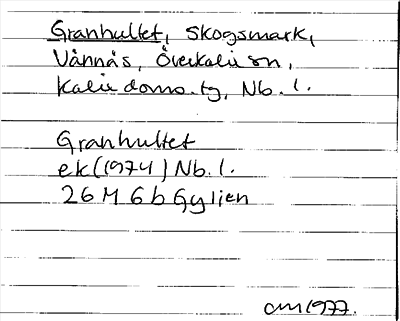 Granhultet, Skogsmark,
Vännäs, Överkalix sn,
Kalix doms.tg, Nb. l.
Granhultet
ek (1974) Nb. l.
26 M 6 b Gyljen
cm 1977.